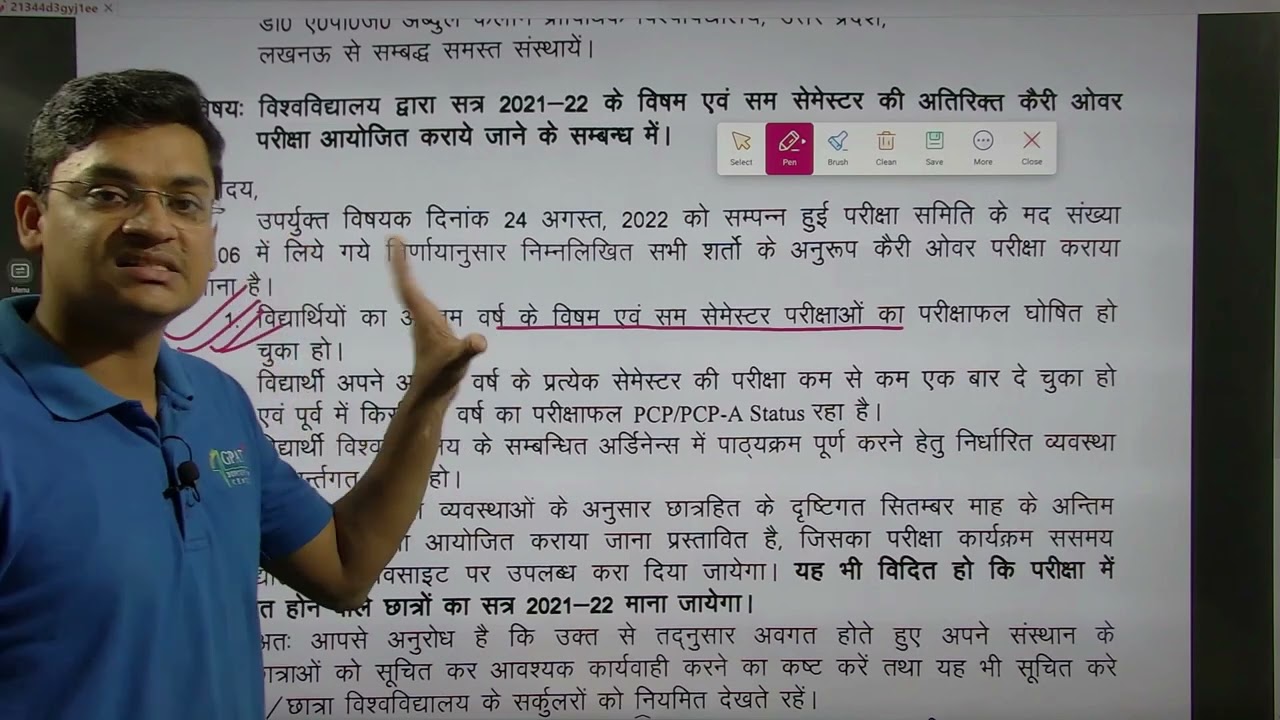 21344d3gyj1ee
लखनऊ से सम्बद्ध समस्त संस्थायें।
विश्वविद्यालय द्वारा सत्र 2021–22 के विषम एवं सम सेमेस्टर की अतिरिक्त कैरी ओवर
परीक्षा आयोजित कराये जाने के सम्बन्ध में।
Select Pen Brush Clean Save More Close
उपर्युक्त विषयक दिनांक 24 अगस्त, 2022 को सम्पन्न हुई परीक्षा समिति के मद संख्या
06 में लिये गये निर्णायानुसार निम्नलिखित सभी शर्तो के अनुरूप कैरी ओवर परीक्षा कराया
है।
Menu
1. विद्यार्थियों का वर्ष के विषम एवं सम सेमेस्टर परीक्षाओं का परीक्षाफल घोषित हो
चुका हो।
विद्यार्थी अपने वर्ष के प्रत्येक सेमेस्टर की परीक्षा कम से कम एक बार दे चुका हो
एवं पूर्व में वर्ष का परीक्षाफल PCP/PCP-A Status रहा है।
के सम्बन्धित अर्डिनेन्स में पाठ्यक्रम पूर्ण करने हेतु निर्धारित व्यवस्था
हो।
व्यवस्थाओं के अनुसार छात्रहित के दृष्टिगत सितम्बर माह के अन्तिम
आयोजित कराया जाना प्रस्तावित है, जिसका परीक्षा कार्यक्रम ससमय
पर उपलब्ध करा दिया जायेगा। यह भी विदित हो कि परीक्षा में
होने वाले छात्रों का सत्र 2021–22 माना जायेगा।
अतः आपसे अनुरोध है कि उक्त से तद्नुसार अवगत होते हुए अपने संस्थान के
को सूचित कर आवश्यक कार्यवाही करने का कष्ट करें तथा यह भी सूचित करे
/छात्रा विश्वविद्यालय के सर्कुलरों को नियमित देखते रहें।
GPAT